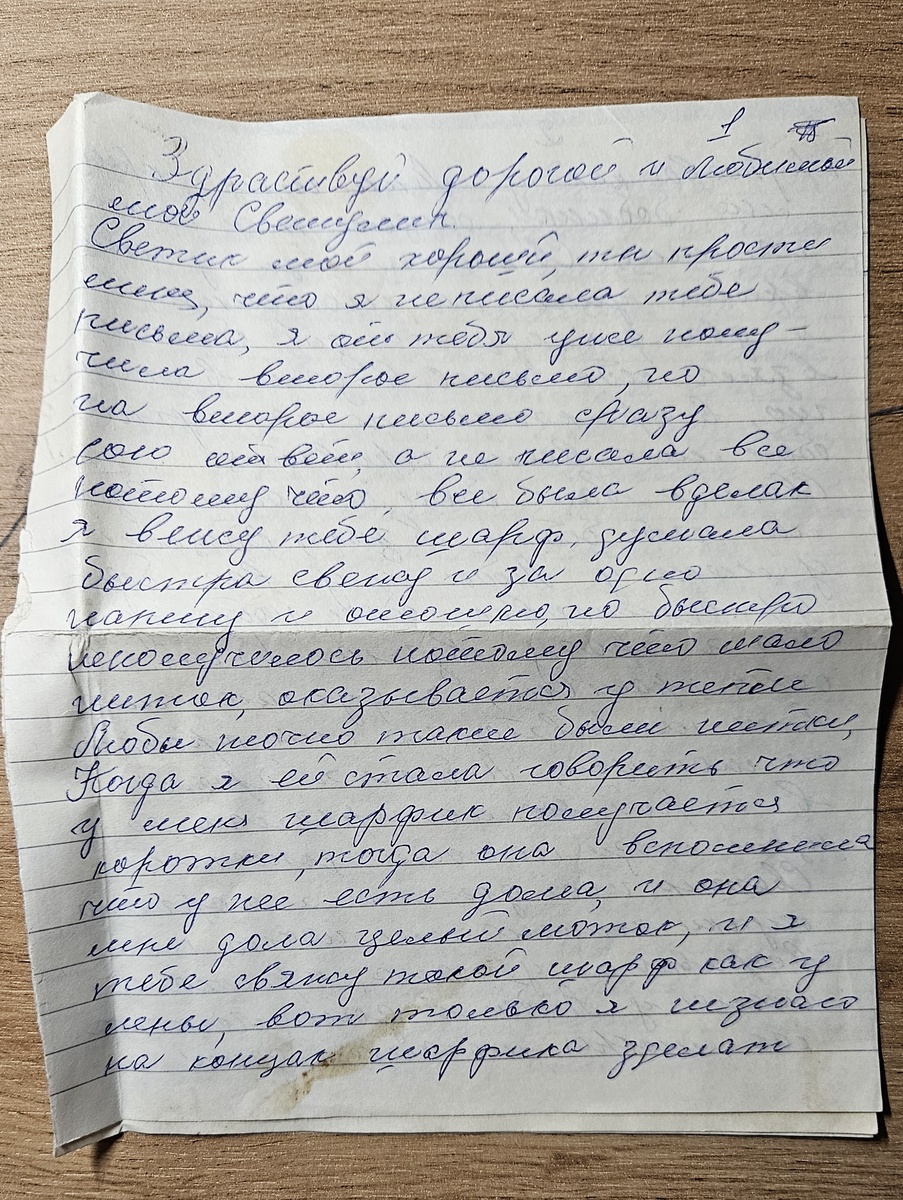 1
Здраствуй дорогой и любимый
мой Светулик.
Светик мой хороший, ты прости
меня, что я не писала тебе
письма, я от тебя уже полу-
чила второе письмо, но
на второе письмо сразу
даю ответ, а не писала все
потому что, все была вделах
я вежу тебе шарф, думала
быстра свежу и за одно
напишу и отошлю, но быстро
неполучилось потому что мало
ниток, оказывается у тети
Любы точно такие были нитки,
Когда я ей стала говорить что
у меня шарфик получается
коротки, тогда она вспомнила
что у нее есть дома, и она
мне дола целый моток, и я
тебе свяжу такой шарф как у
лены, вот только я незнаю
на концах шарфика зделат